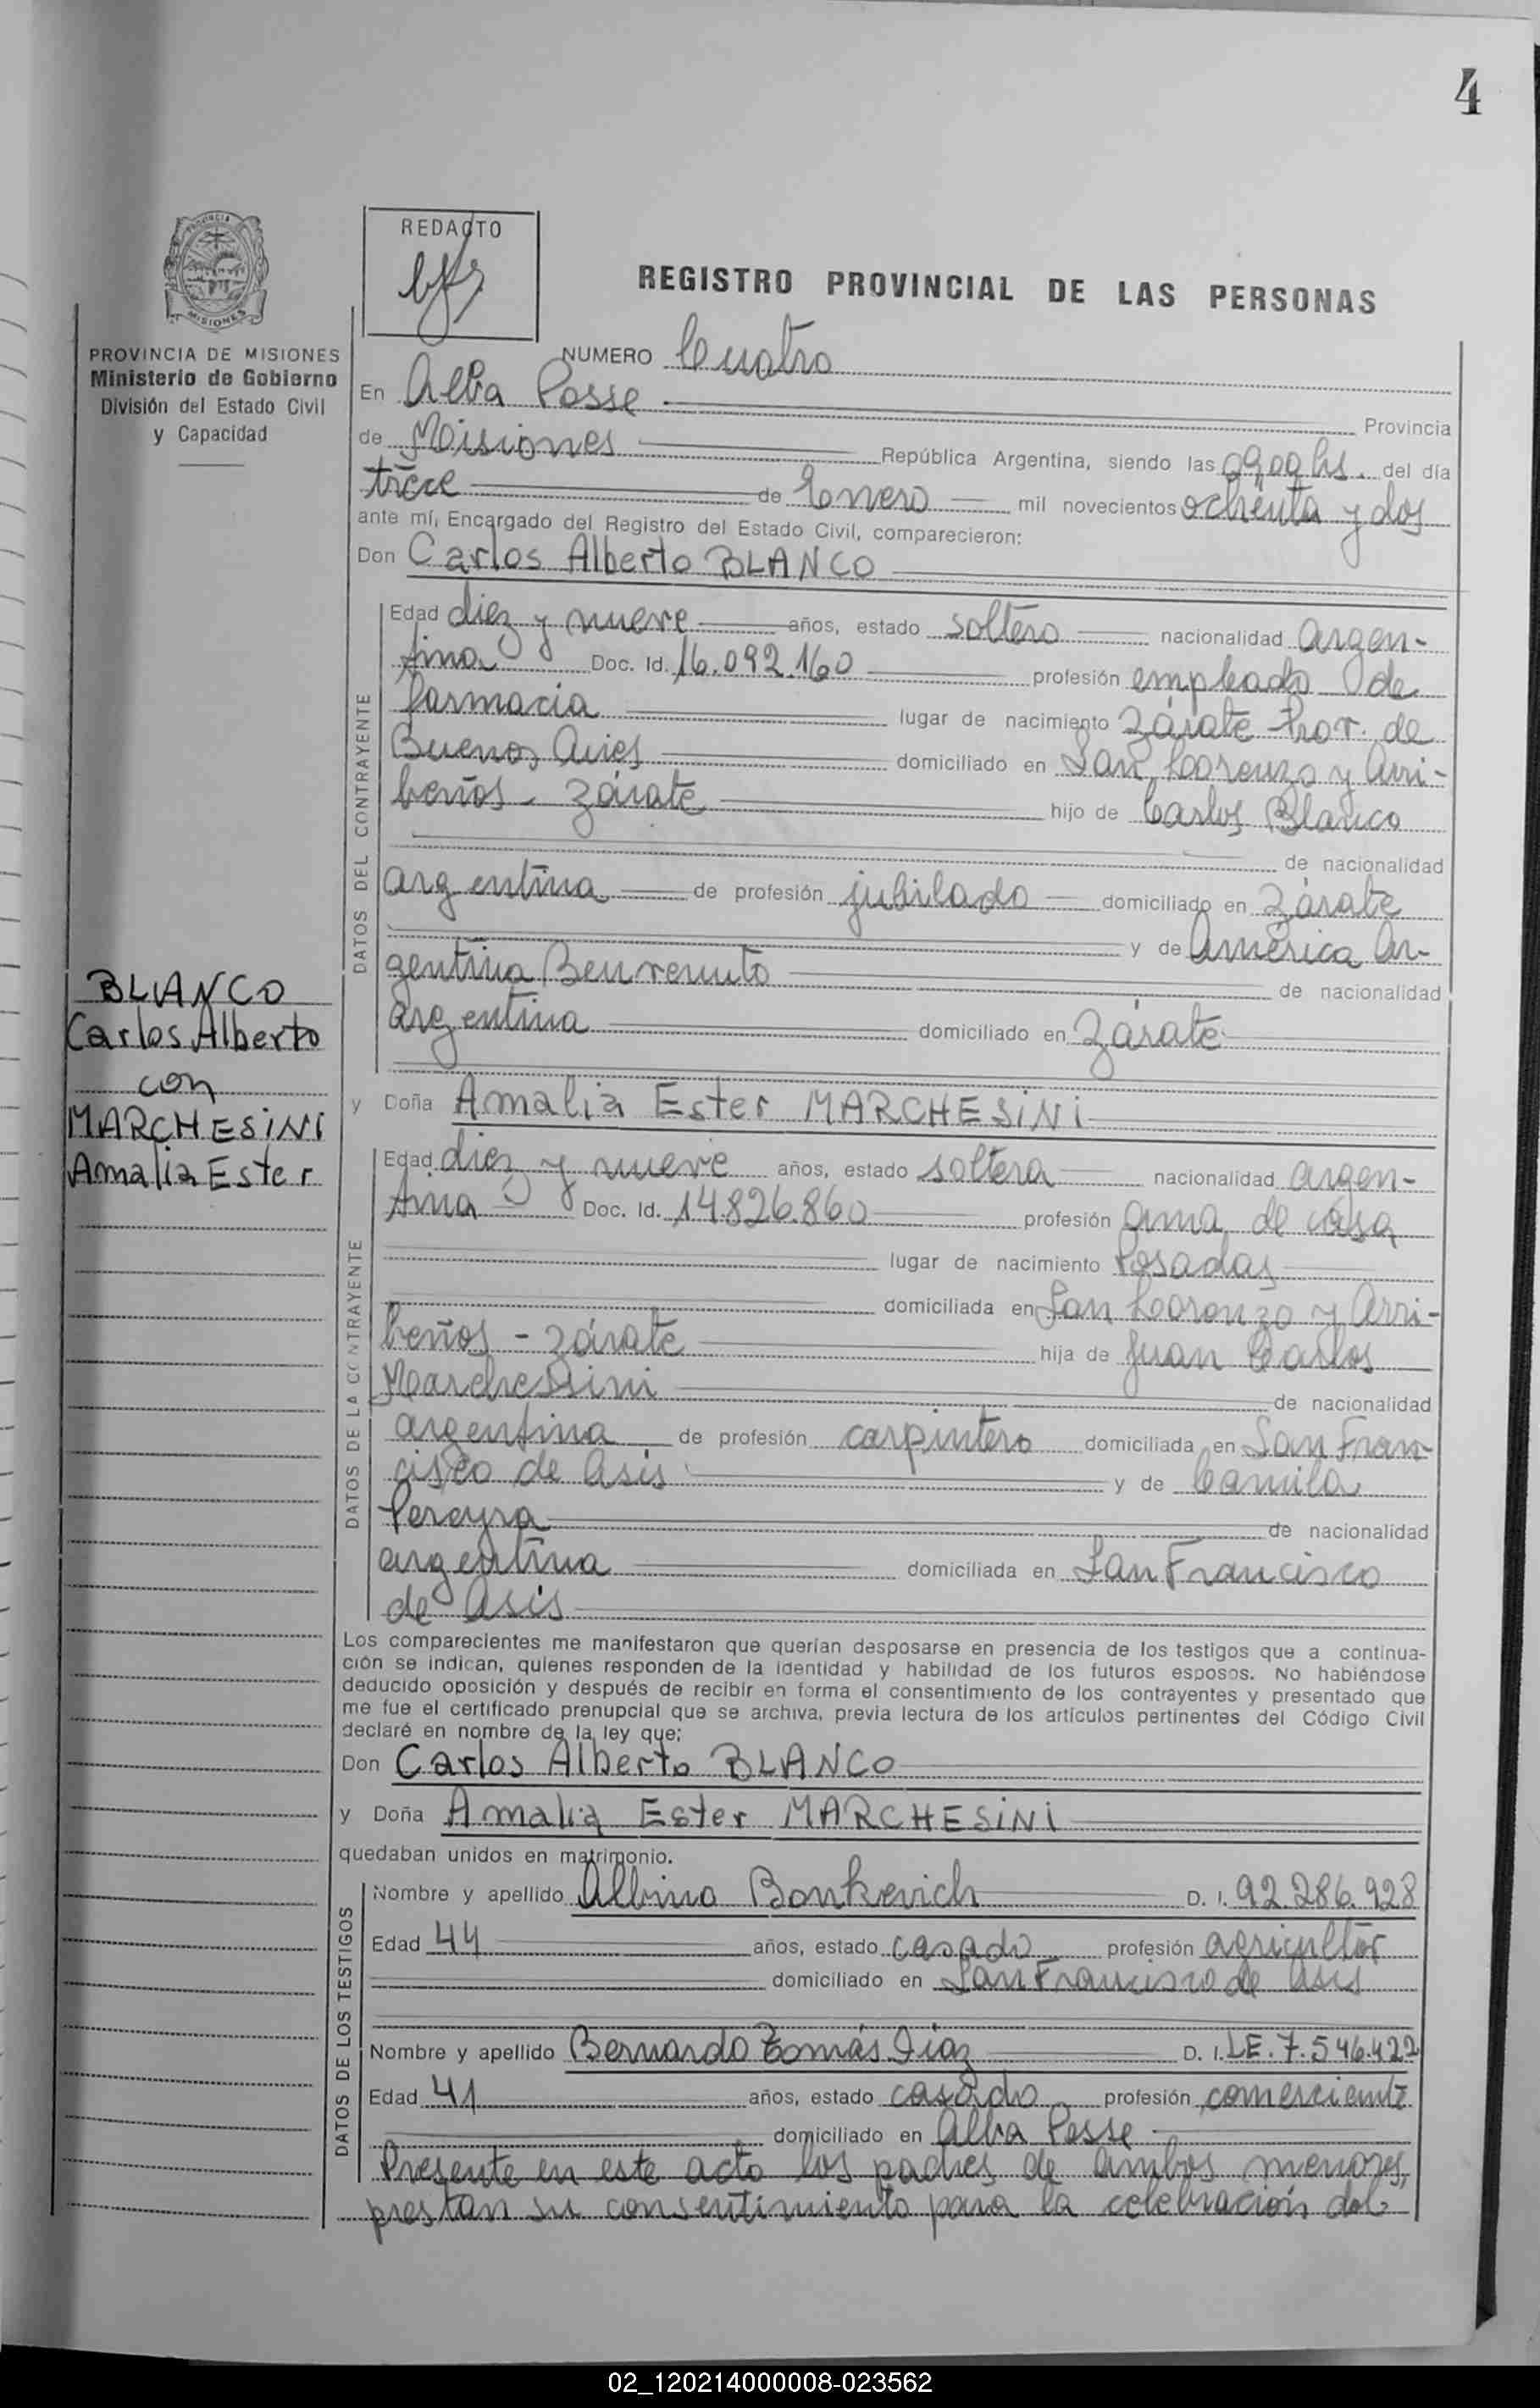 4
PROVINCIA
MISIONES
REDACTO
REGISTRO PROVINCIAL DE LAS PERSONAS
PROVINCIA DE MISIONES
Ministerio de Gobierno
División del Estado Civil
y Capacidad
NUMERO Cuatro
En Alba Posse Provincia
de Misiones República Argentina, siendo las 09,00 hs. del día
trece de Enero mil novecientos ochenta y dos
ante mí, Encargado del Registro del Estado Civil, comparecieron:
Don Carlos Alberto BLANCO
DATOS DEL CONTRAYENTE
Edad diez y nueve años, estado soltero nacionalidad argen-
tina Doc. Id. 16.092.160 profesión empleado de
farmacia lugar de nacimiento Zárate Prov. de
Buenos Aires domiciliado en San Lorenzo y Arri-
beños - Zárate hijo de Carlos Blanco
de nacionalidad
argentina de profesión jubilado domiciliado en Zárate
y de América Ar-
gentina Benvenuto de nacionalidad
argentina domiciliado en Zárate
BLANCO
Carlos Alberto
con
MARCHESINI
Amalia Ester
y Doña Amalia Ester MARCHESINI
DATOS DE LA CONTRAYENTE
Edad diez y nueve años, estado soltera nacionalidad argen-
tina Doc. Id. 14.826.860 profesión ama de casa
lugar de nacimiento Posadas
domiciliada en San Lorenzo y Arri-
beños - Zárate hija de Juan Carlos
Marchesini de nacionalidad
argentina de profesión carpintero domiciliada en San Fran-
cisco de Asis y de Camila
Pereyra de nacionalidad
argentina domiciliada en San Francisco
de Asis
Los comparecientes me manifestaron que querían desposarse en presencia de los testigos que a continua-
ción se indican, quienes responden de la identidad y habilidad de los futuros esposos. No habiéndose
deducido oposición y después de recibir en forma el consentimiento de los contrayentes y presentado que
me fue el certificado prenupcial que se archiva, previa lectura de los artículos pertinentes del Código Civil
declaré en nombre de la ley que:
Don Carlos Alberto BLANCO
y Doña Amalia Ester MARCHESINI
quedaban unidos en matrimonio.
DATOS DE LOS TESTIGOS
Nombre y apellido Albino Bonkevich D. I. 92.286.928
Edad 44 años, estado casado profesión agricultor
domiciliado en San Francisco de Asis
Nombre y apellido Bernardo Tomás Diaz D. I. LE. 7.546.422
Edad 41 años, estado casado profesión comerciante
domiciliado en Alba Posse
Presente en este acto los padres de ambos menores,
prestan su consentimiento para la celebración del
02_120214000008-023562